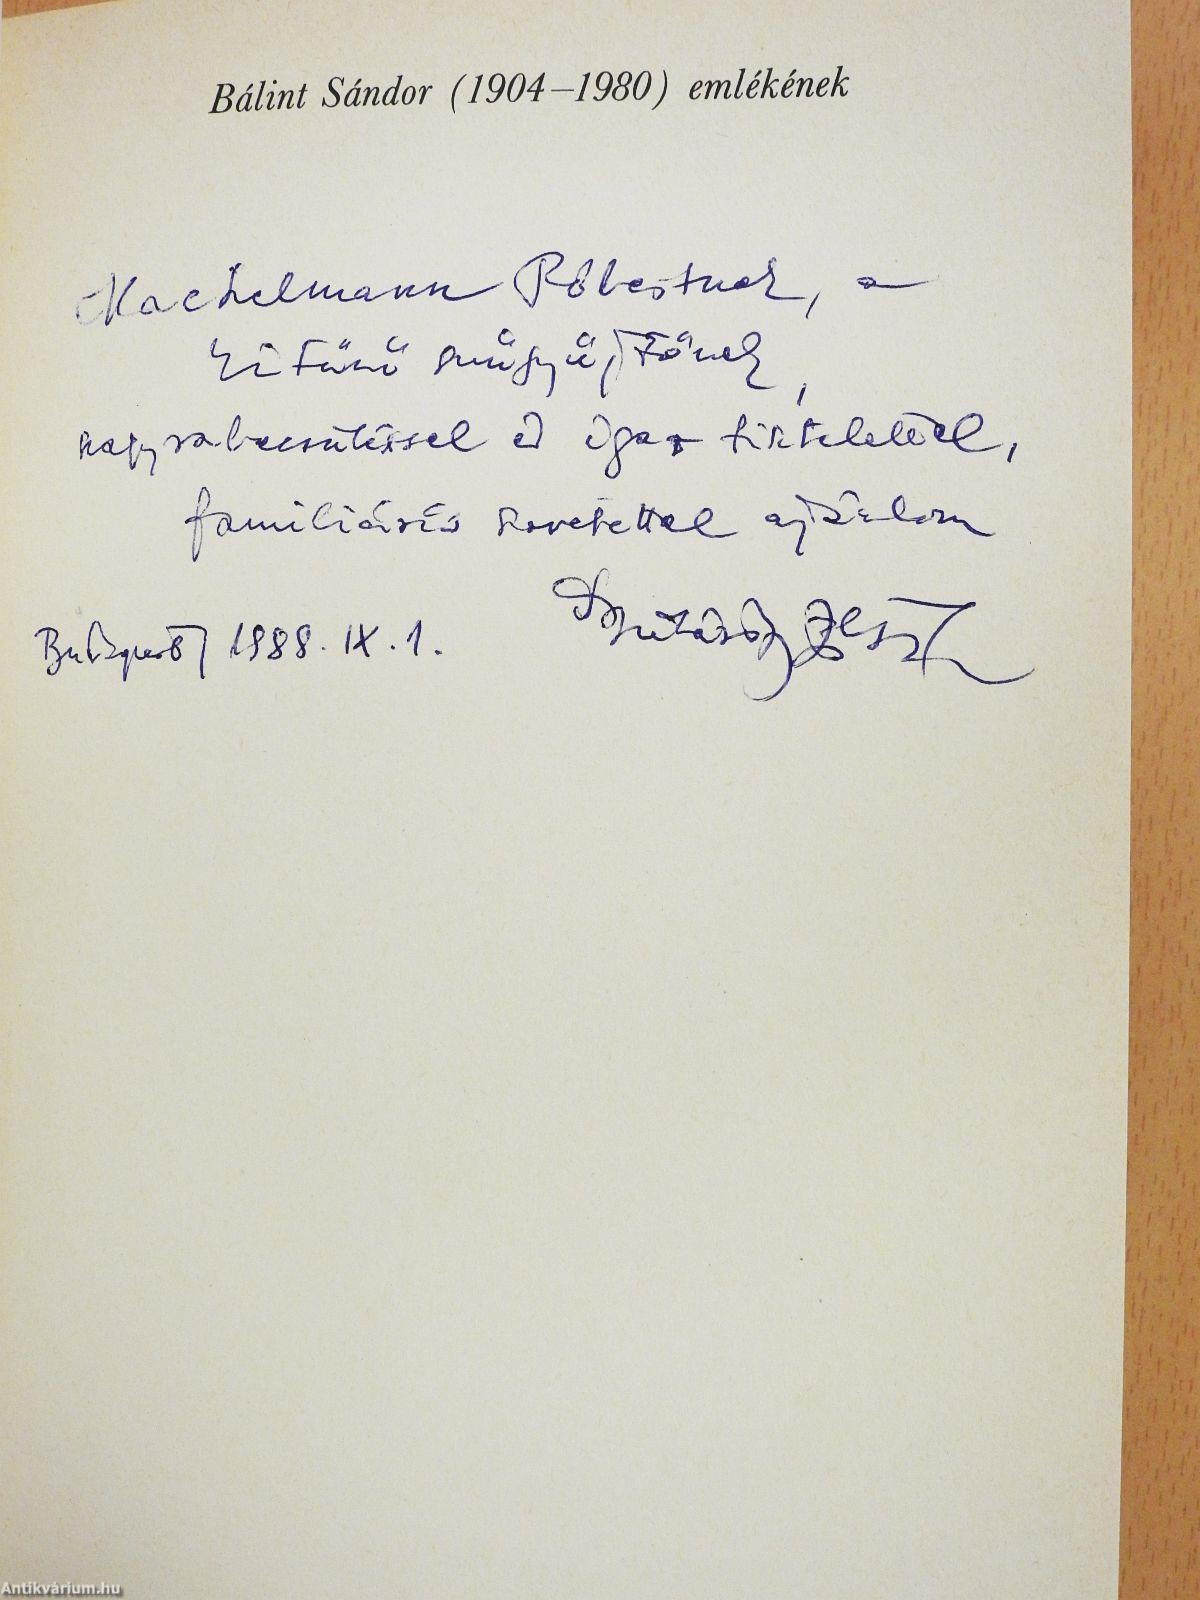 Bálint Sándor (1904–1980) emlékének
Róbertnek, a
kitűnő műgyűjtőnek,
nagyrabecsüléssel és igaz tisztelettel,
familiáris szeretettel ajánlom
Budapest, 1988. IX. 1.
Antikvárium.hu